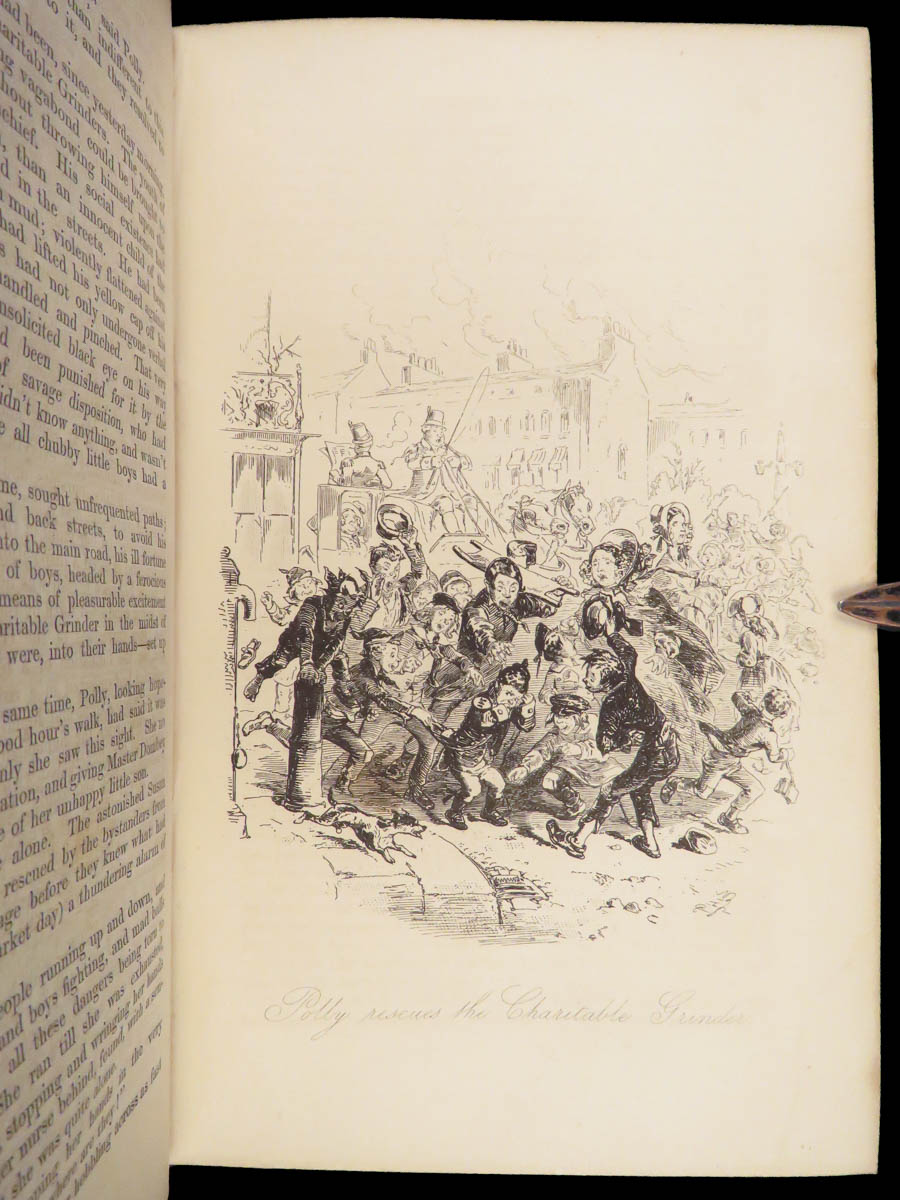 ," said Polly.
than indifferent to the
to it, and they resolved to
had been, since yesterday morning,
haritable Grinders. The youth
ng vagabond could be brought
hout throwing himself upon the
schief. His social existence had
, than an innocent child of the
d in the streets. He had been
mud; violently flattened against
had lifted his yellow cap off his
s had not only undergone verbal
handled and pinched. That very
nsolicited black eye on his way
d been punished for it by the
of savage disposition, who had
idn't know anything, and wasn't
e all chubby little boys had a
me, sought unfrequented paths;
nd back streets, to avoid his
nto the main road, his ill fortune
of boys, headed by a ferocious
means of pleasurable excitement
haritable Grinder in the midst of
were, into their hands—set up
same time, Polly, looking hope-
ood hour's walk, had said it was
only she saw this sight. She no
ation, and giving Master Dombey
e of her unhappy little son.
alone. The astonished Susan
rescued by the bystanders from
age before they knew what had
arket day) a thundering alarm of
eople running up and down, and
and boys fighting, and mad bulls
all these dangers being torn to
she ran till she was exhausted,
stopping and wringing her hands
er nurse behind, found, with a
she was quite alone.
her hands in the very
where are they!"
hobbling across as fast
Polly rescues the Charitable Grinder